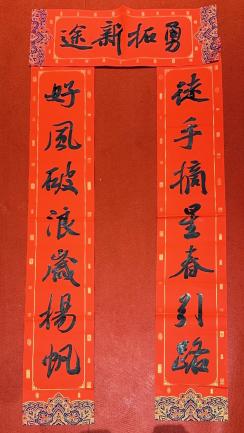 勇拓新途
徒手摘星春引路
好風破浪歲揚帆